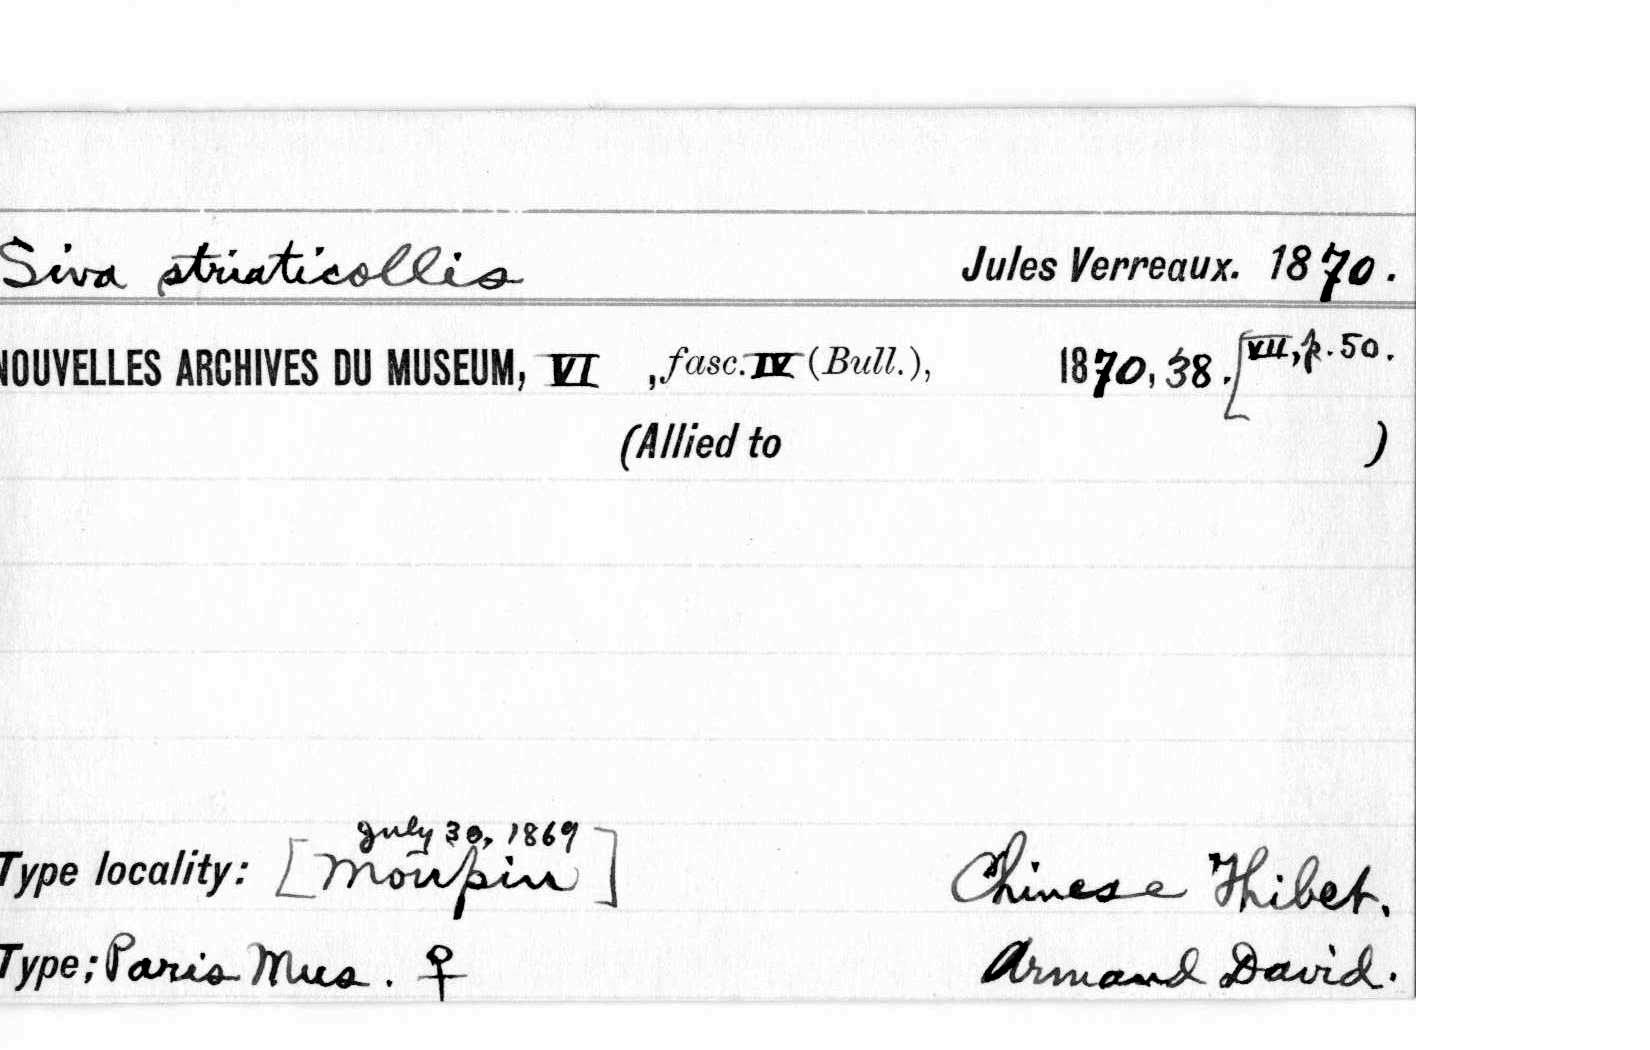 Siva striaticollis Jules Verreaux. 1870.
NOUVELLES ARCHIVES DU MUSEUM, VI , fasc. IV (Bull.), 1870, 38. [VII, p. 50.
(Allied to )
July 30, 1869
Type locality: [Moupin] Chinese Thibet.
Type; Paris Mus. ♀ Armand David.